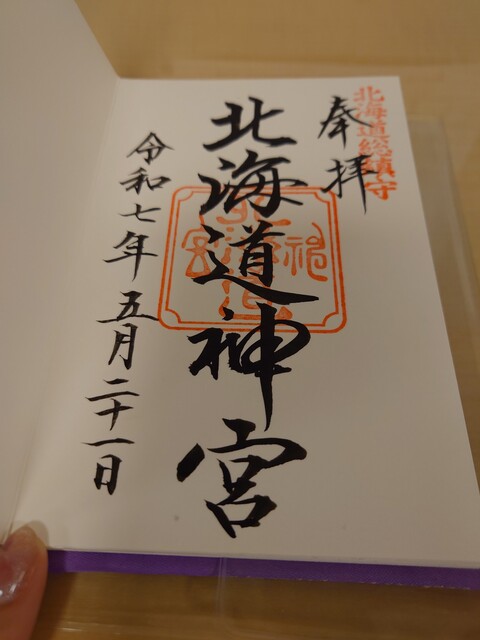 北海道総鎮守
奉拝
北海道神宮
令和七年五月二十一日